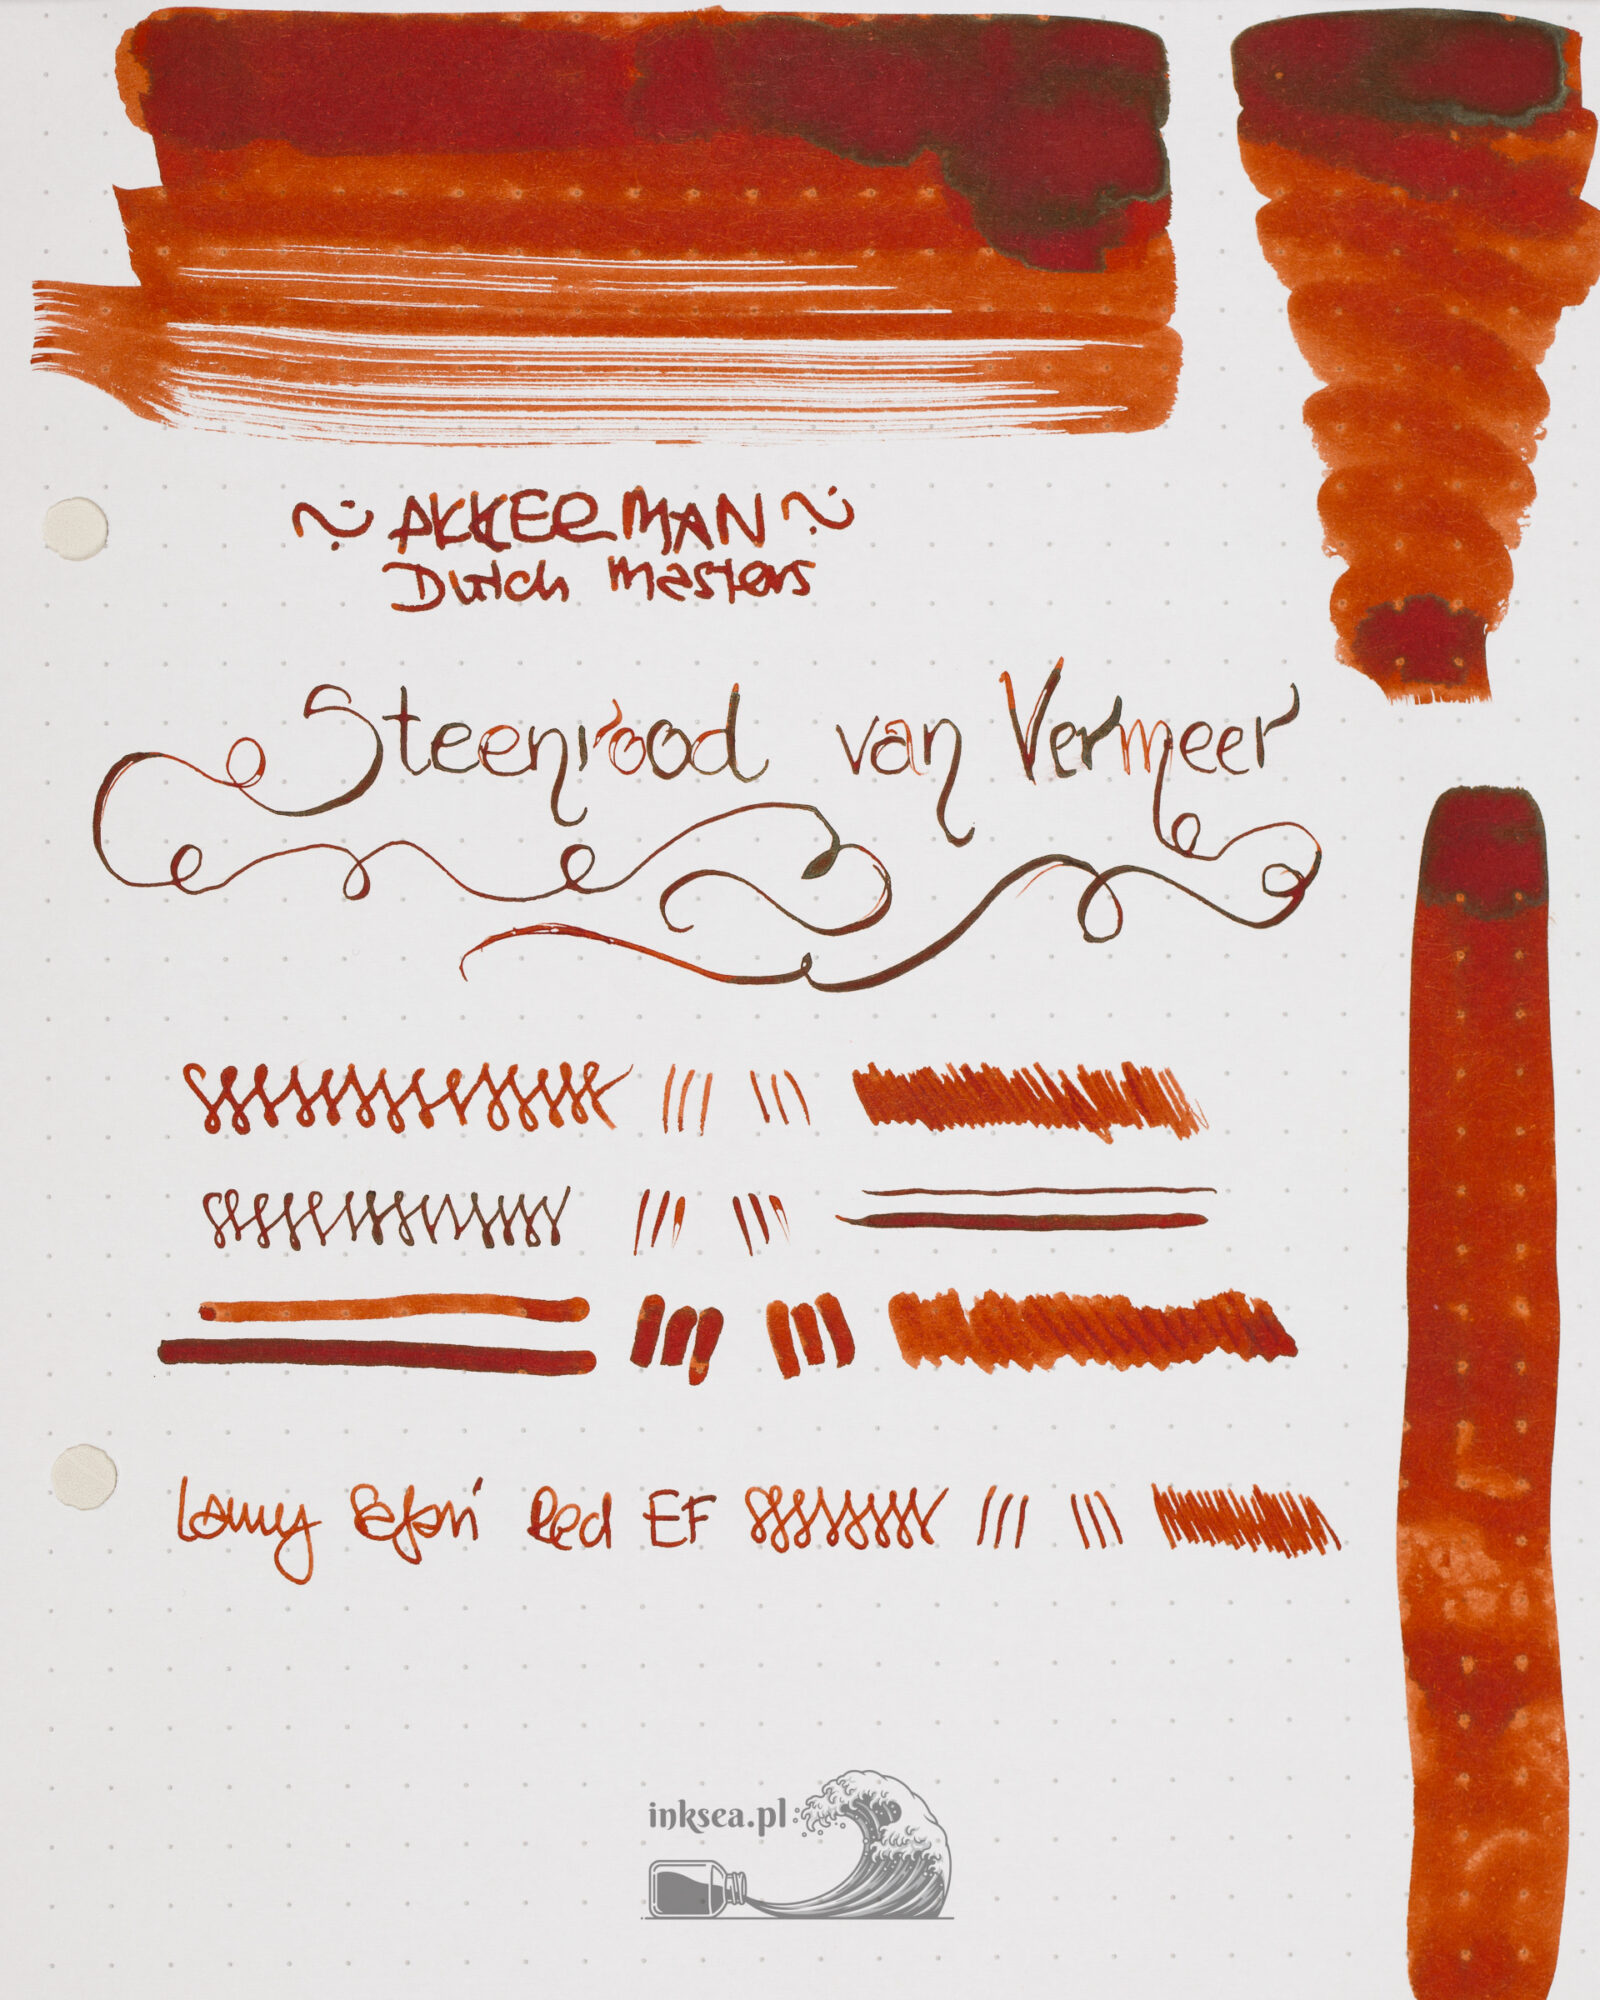 ~ AKKERMAN ~
Dutch Masters
Steenrood van Vermeer
Lamy Safari Red EF
inksea.pl